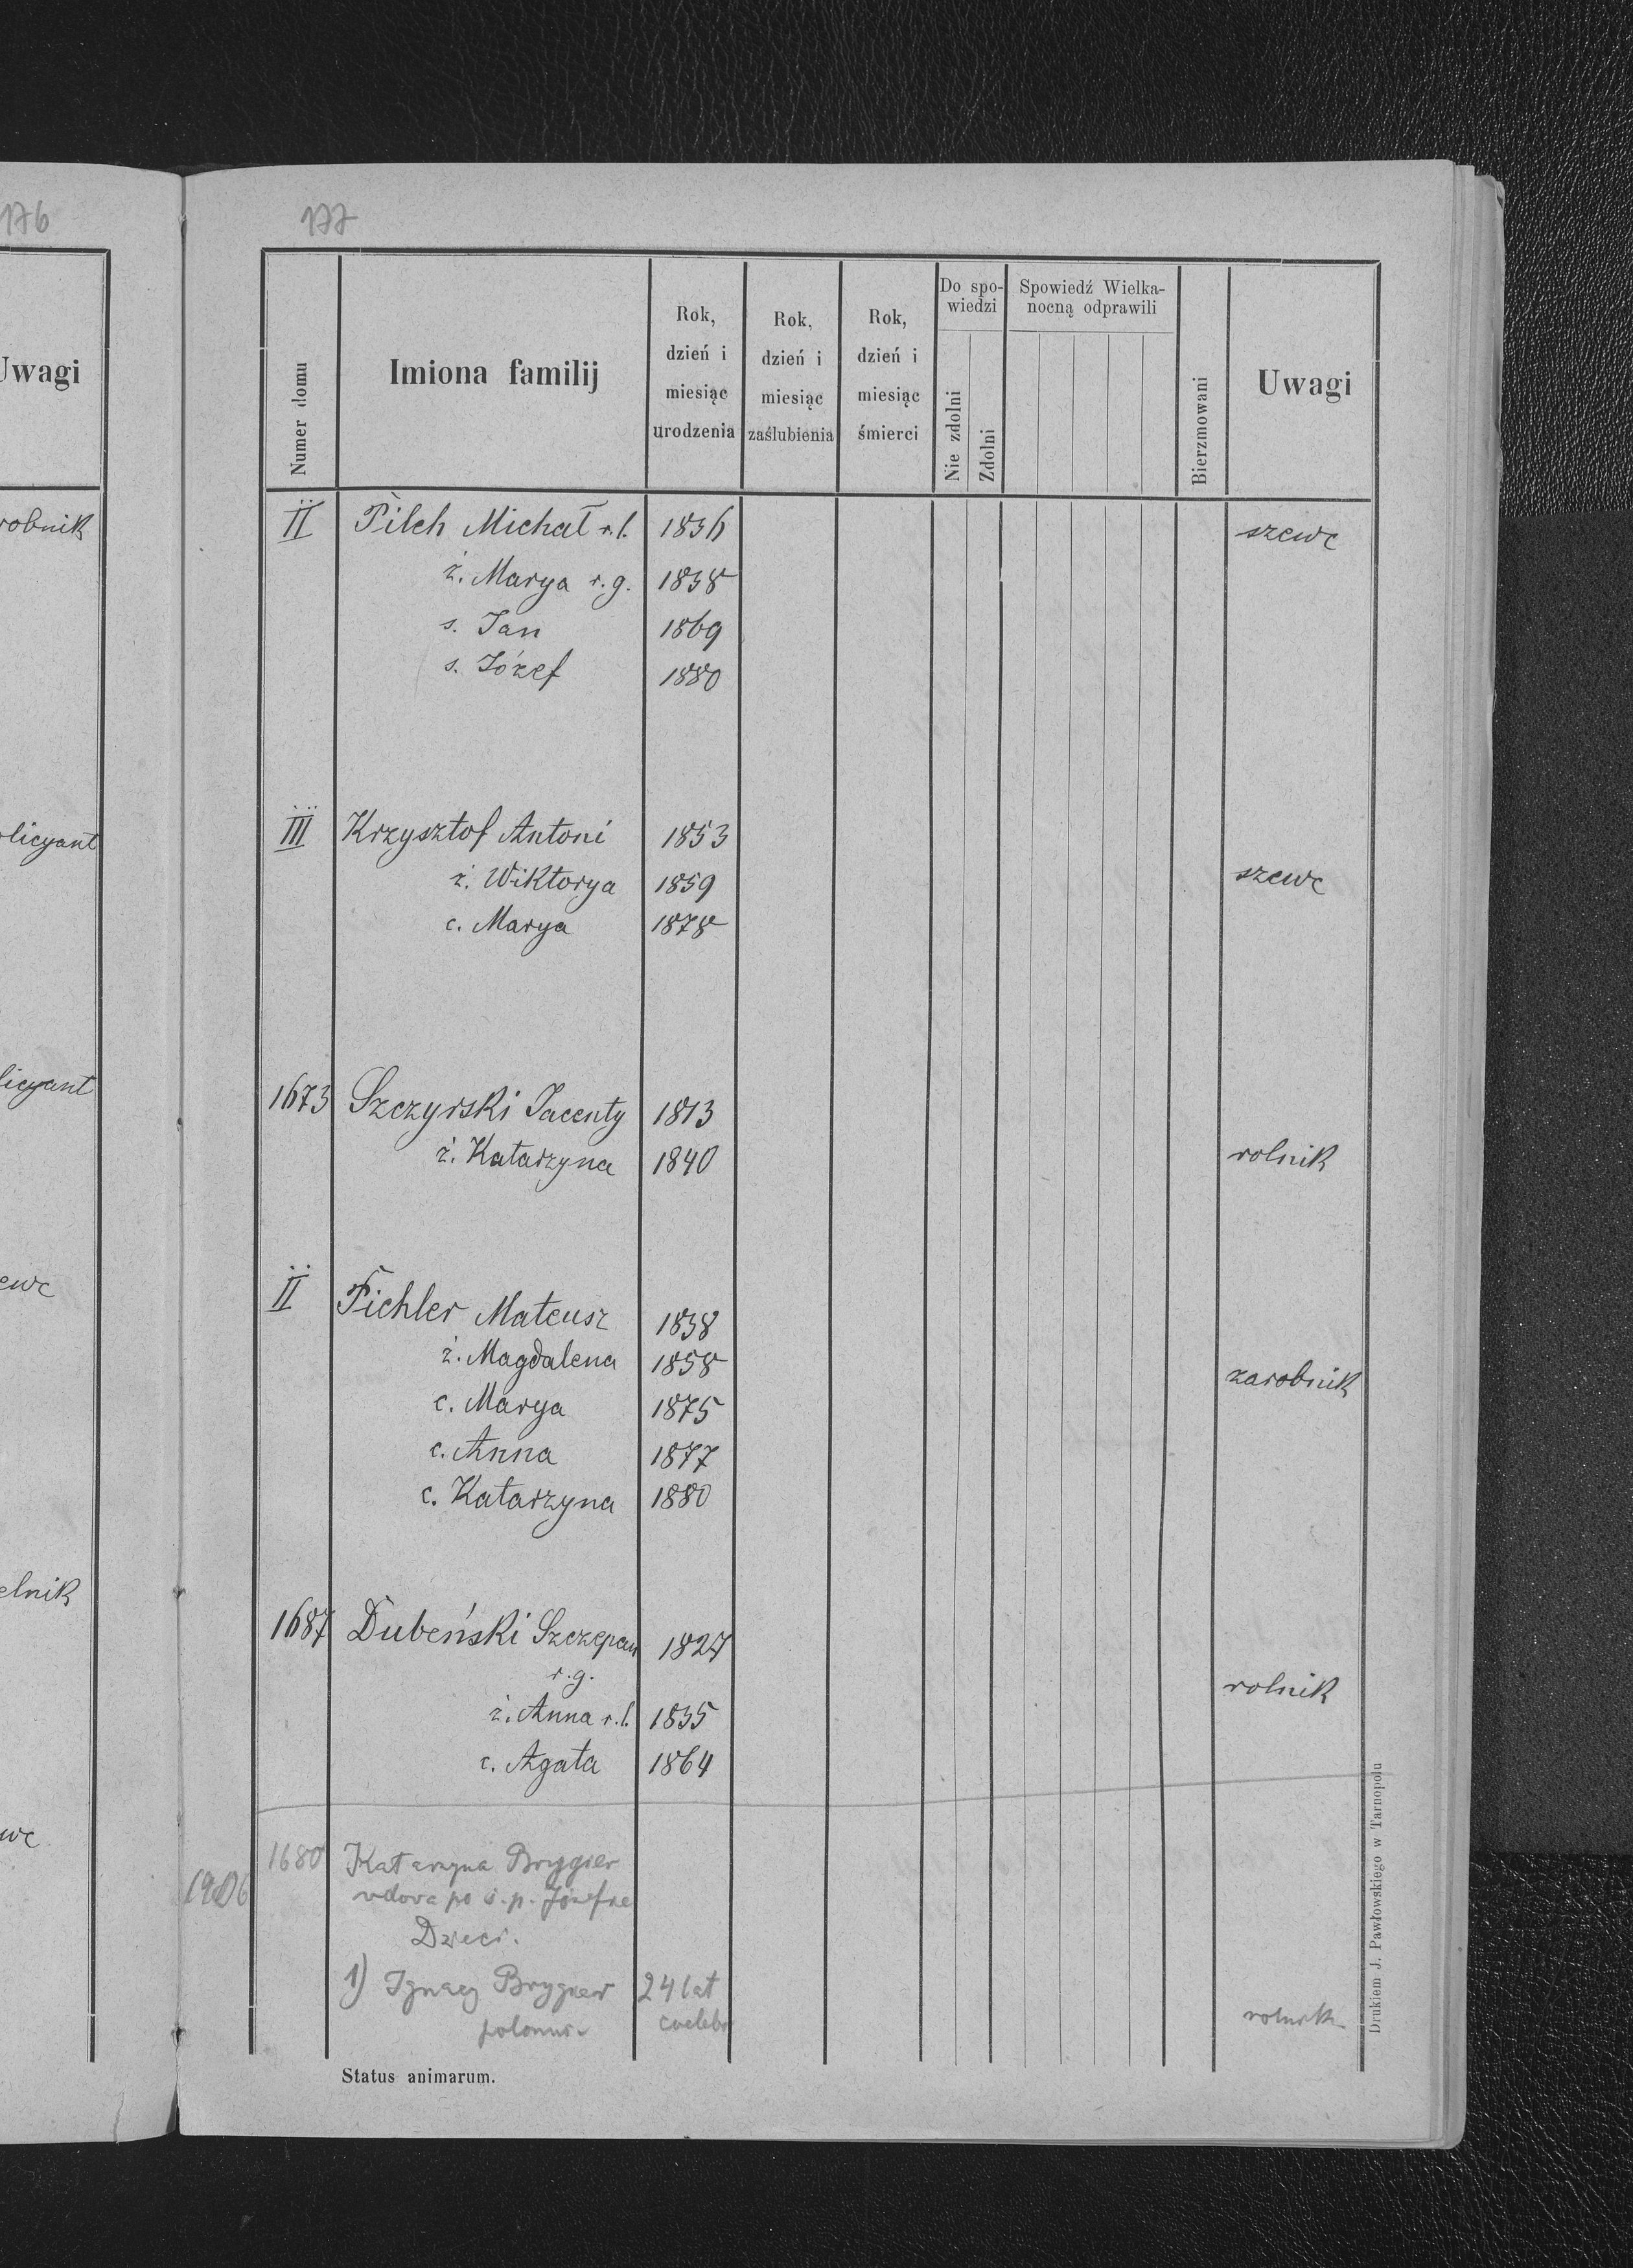 176
177
Uwagi
Numer domu
Imiona familij
Rok, dzień i miesiąc urodzenia
Rok, dzień i miesiąc zaślubienia
Rok, dzień i miesiąc śmierci
Do spo-
wiedzi
Nie zdolni
Zdolni
Spowiedź Wielka-
nocną odprawili
Bierzmowani
Uwagi
robnik
II Pilch Michał r.l. 1836 szewc
ż. Marya r.g. 1838
s. Jan 1869
s. Józef 1880
licyant
III Krzysztof Antoni 1853
ż. Wiktorya 1859 szewc
c. Marya 1878
licyant
1673 Szczyrski Jacenty 1813
ż. Katarzyna 1840 rolnik
ewc
II Pichler Mateusz 1838
ż. Magdalena 1858 zarobnik
c. Marya 1875
c. Anna 1877
c. Katarzyna 1880
elnik
1687 Dubeński Szczepan 1827
r.g. rolnik
ż. Anna r.l. 1835
c. Agata 1864
wc
1906 1680 Katarzyna Brygier
wdowa po ś.p. Józefie
Dzieci.
1) Ignacy Brygier 24 lat
polonus caelebs rolnik
Status animarum.
Drukiem J. Pawłowskiego w Tarnopolu